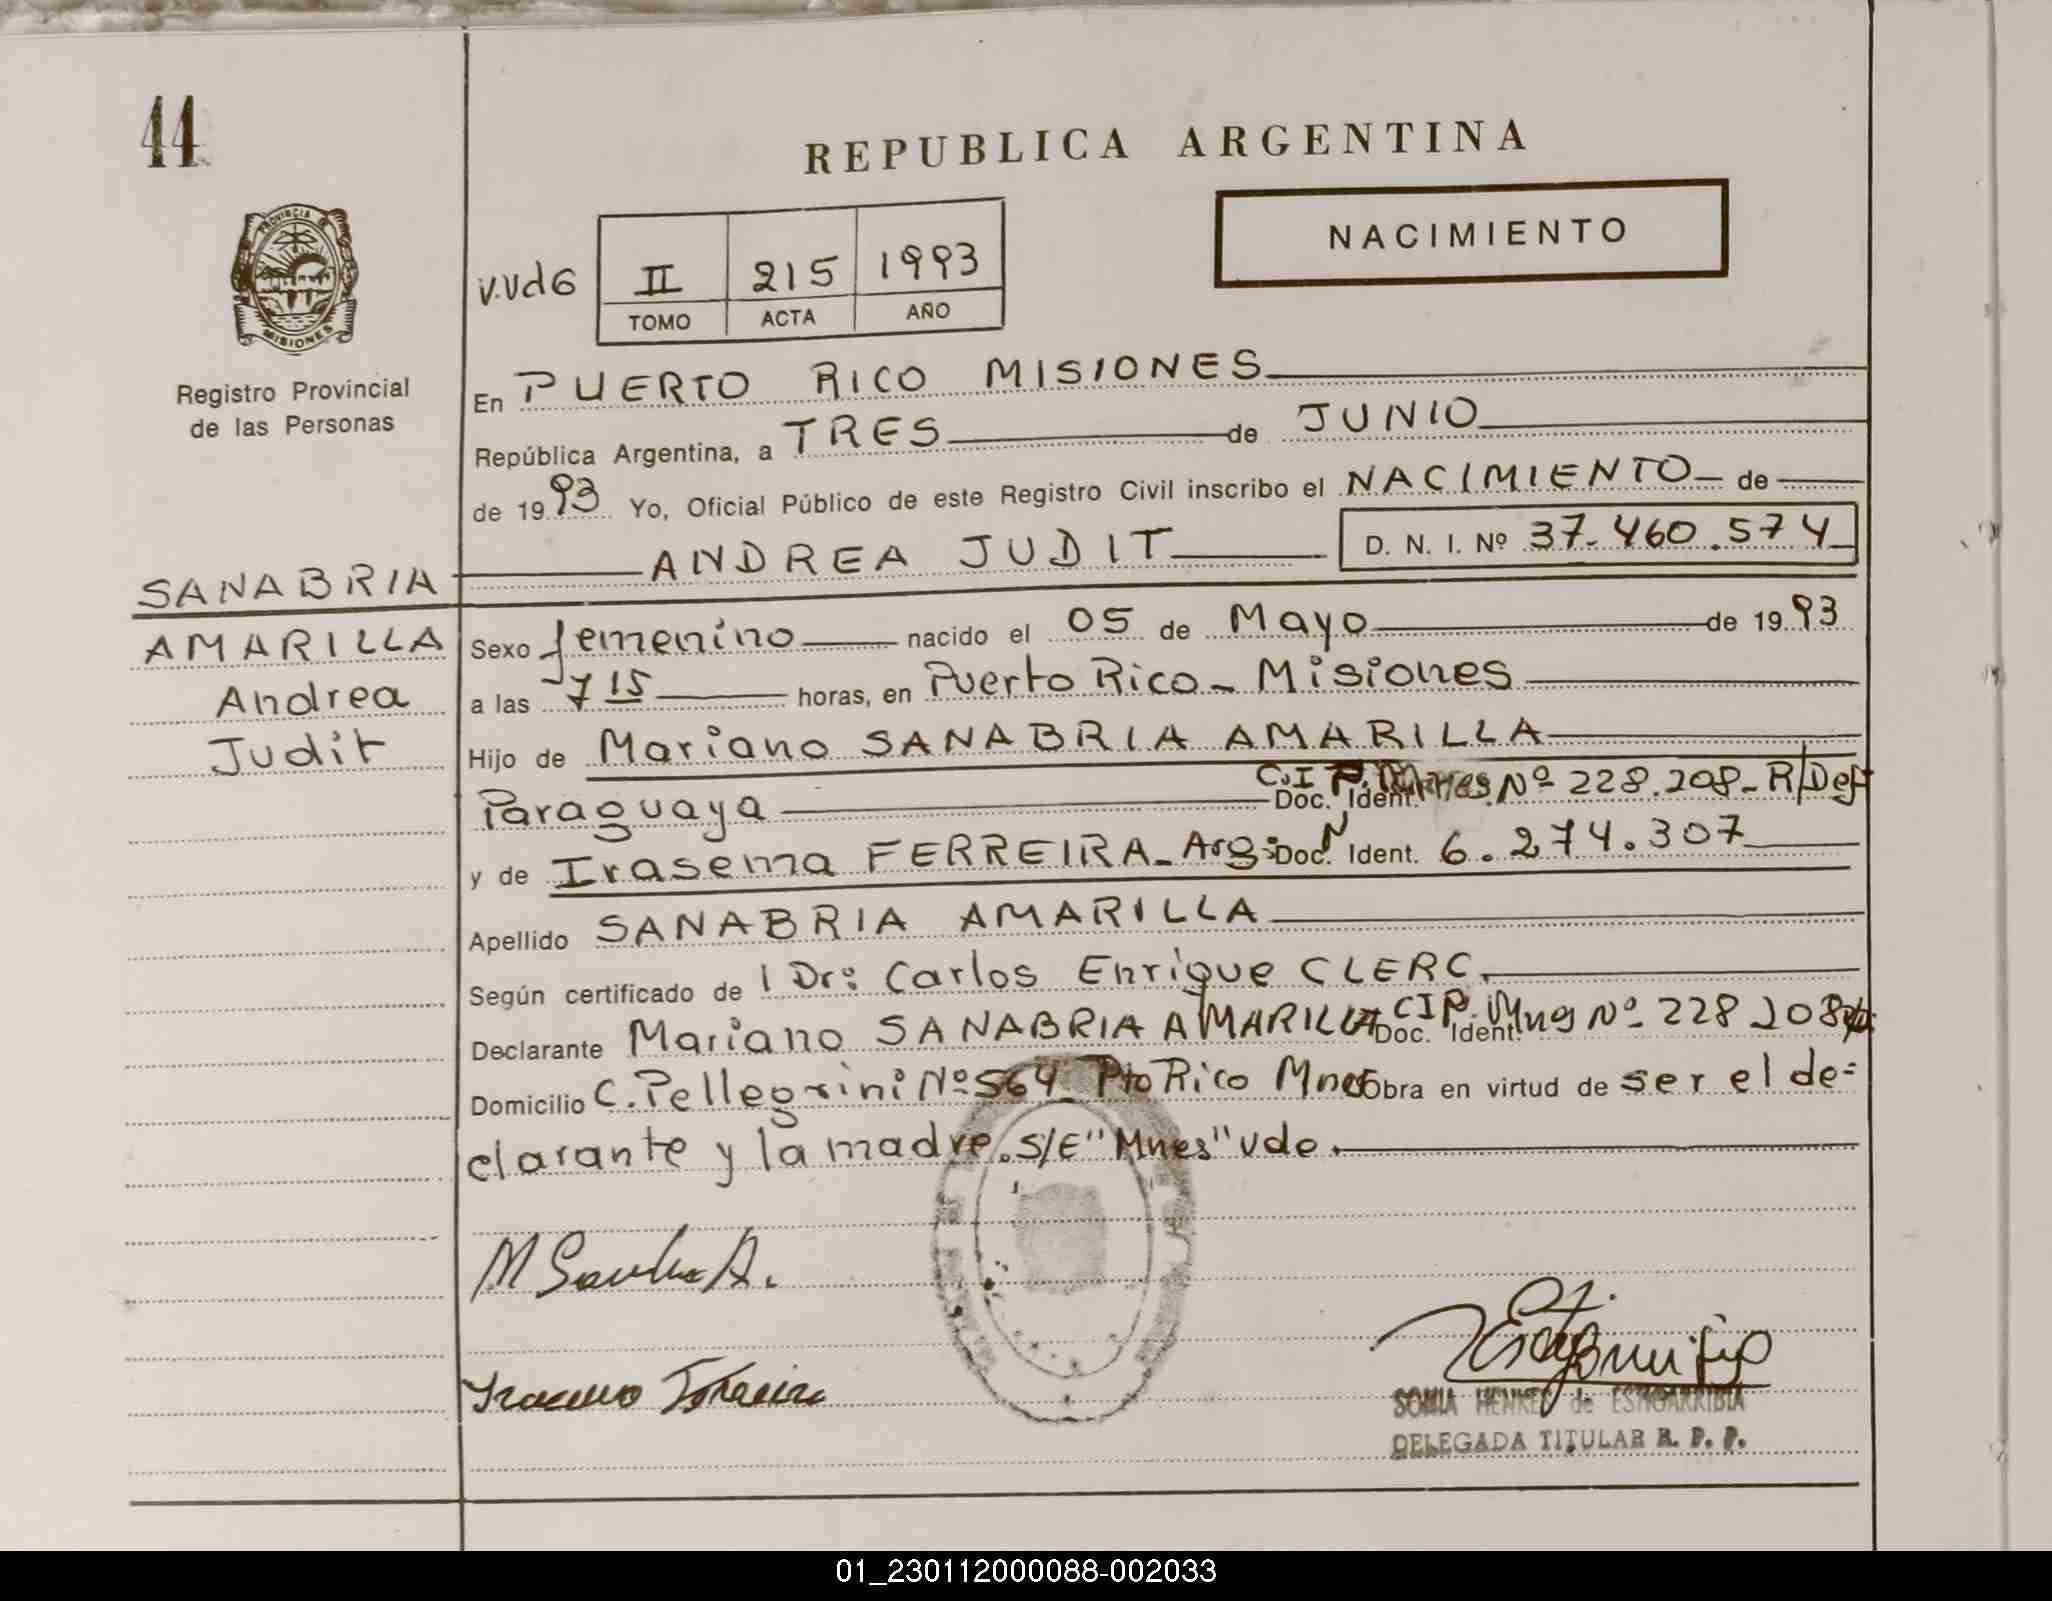 44
REPUBLICA ARGENTINA
NACIMIENTO
PROVINCIA DE
MISIONES
Registro Provincial
de las Personas
V.Vd6 II 215 1993
TOMO ACTA AÑO
En PUERTO RICO MISIONES
República Argentina, a TRES de JUNIO
de 1993 Yo, Oficial Público de este Registro Civil inscribo el NACIMIENTO de
ANDREA JUDIT D. N. I. Nº 37.460.574
SANABRIA
AMARILLA
Andrea
Judit
Sexo femenino nacido el 05 de Mayo de 1993
a las 7 15 horas, en Puerto Rico - Misiones
Hijo de Mariano SANABRIA AMARILLA
Paraguaya Doc. Ident. C.I.P. Mnes Nº 228.208 - R/Def
y de Irasema FERREIRA - Arg: Doc. N Ident. 6.274.307
Apellido SANABRIA AMARILLA
Según certificado de l Dr: Carlos Enrique CLERC.
Declarante Mariano SANABRIA AMARILLA Doc. Ident. CIP. Mnes Nº 228 208
Domicilio C. Pellegrini Nº 564 Pto Rico Mnes Obra en virtud de ser el de=
clarante y la madre. S/E "Mnes" Vde.
M Sanabria A.
Irasema Ferreira
SONIA HENKES de ESNGARRIBIA
DELEGADA TITULAR R. P. P.
01_230112000088-002033